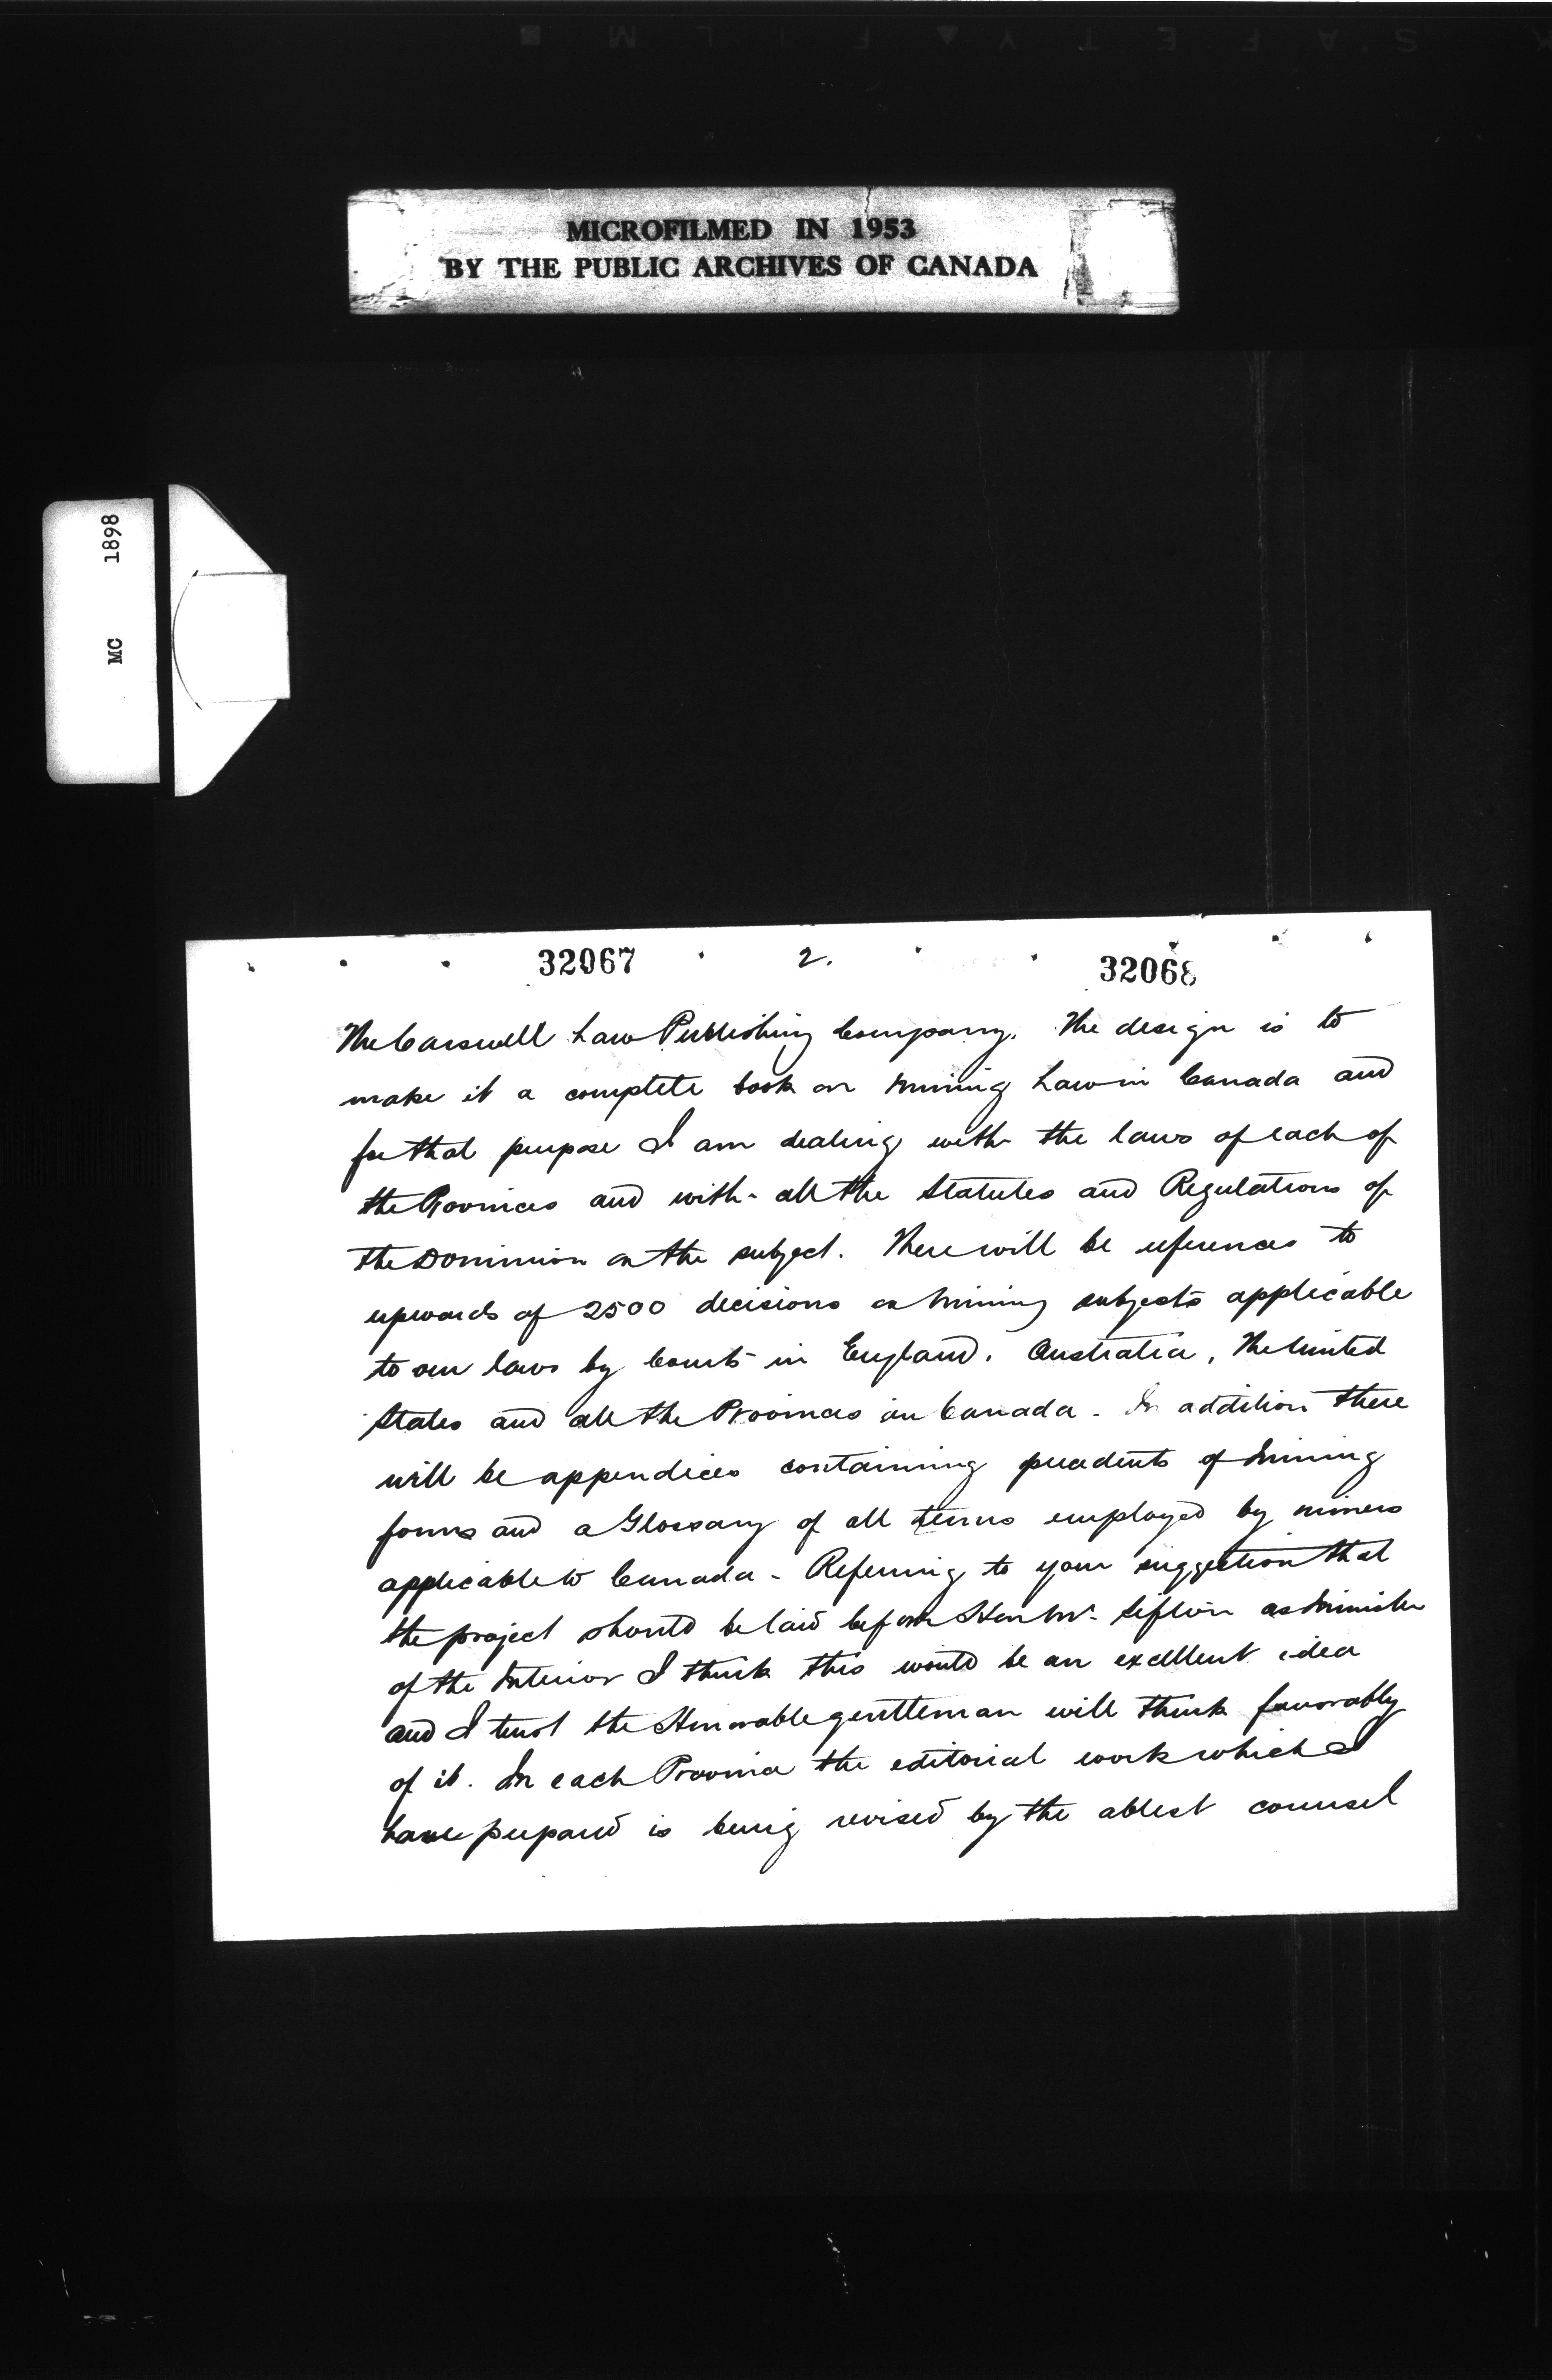 SAFETY FILM
MICROFILMED IN 1953
BY THE PUBLIC ARCHIVES OF CANADA
MC 1898
32067 2. 32068
The Carswell Law Publishing Company. The design is to
make it a complete book on Mining Law in Canada and
for that purpose I am dealing with the laws of each of
the Provinces and with all the Statutes and Regulations of
the Dominion on the subject. There will be references to
upwards of 2500 decisions on Mining subjects applicable
to our laws by Courts in England, Australia, The United
States and all the Provinces in Canada. In addition there
will be appendices containing precedents of Mining
forms and a Glossary of all terms employed by miners
applicable to Canada - Referring to your suggestion that
the project should be laid before Hon Mr. Sifton as Minister
of the Interior I think this would be an excellent idea
and I trust the Honorable gentleman will think favorably
of it. In each Province the editorial work which I
have prepared is being revised by the ablest counsel